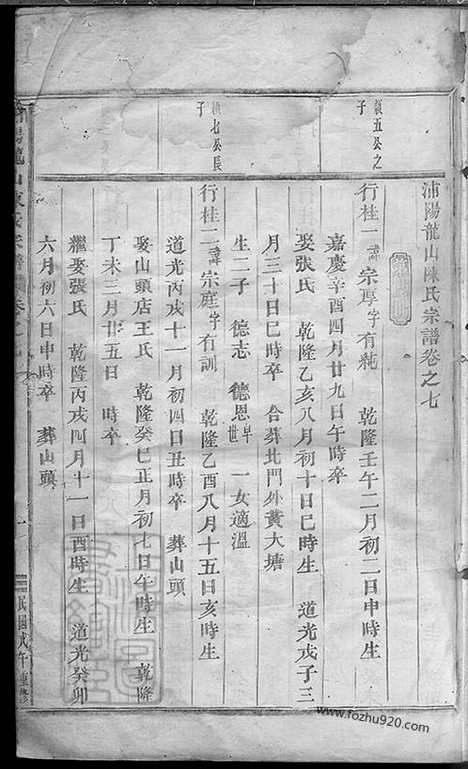 浦陽龍山陳氏宗譜卷之七
鎮五公之子
行桂一諱宗厚字有純 乾隆壬午二月初二日申時生
嘉慶辛酉四月廿九日午時卒
娶張氏 乾隆乙亥八月初十日巳時生 道光戊子三
月三十日巳時卒 合葬北門外黃大塘
鎮七公長子
生二子 德志 德恩早世 一女適溫
行桂二諱宗庭字有訓 乾隆乙酉八月十五日亥時生
道光丙戌十一月初四日丑時卒 葬山頭
娶山頭店王氏 乾隆癸巳正月初七日午時生 乾隆
丁未三月廿五日 時卒
繼娶張氏 乾隆丙戌四月十一日酉時生 道光癸卯
六月初六日申時卒 葬山頭
陽龍山陳氏宗譜 卷之七
民國戊午重修
www.fozhu920.com